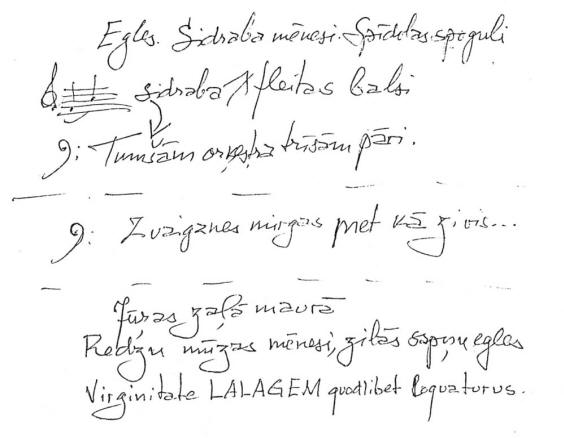 Egles. Sidraba mēnesi. Spīdolas spoguli
sidraba fleitas balsi
Tumšām orķestra trīsām pāri.
Zvaigznes mirgas met kā zivis...
Jūŗas zaļā maurā
Redzu mūzas mēnesi, zilās egles
Virginitate LALAGEM quodlibet loquaturus.